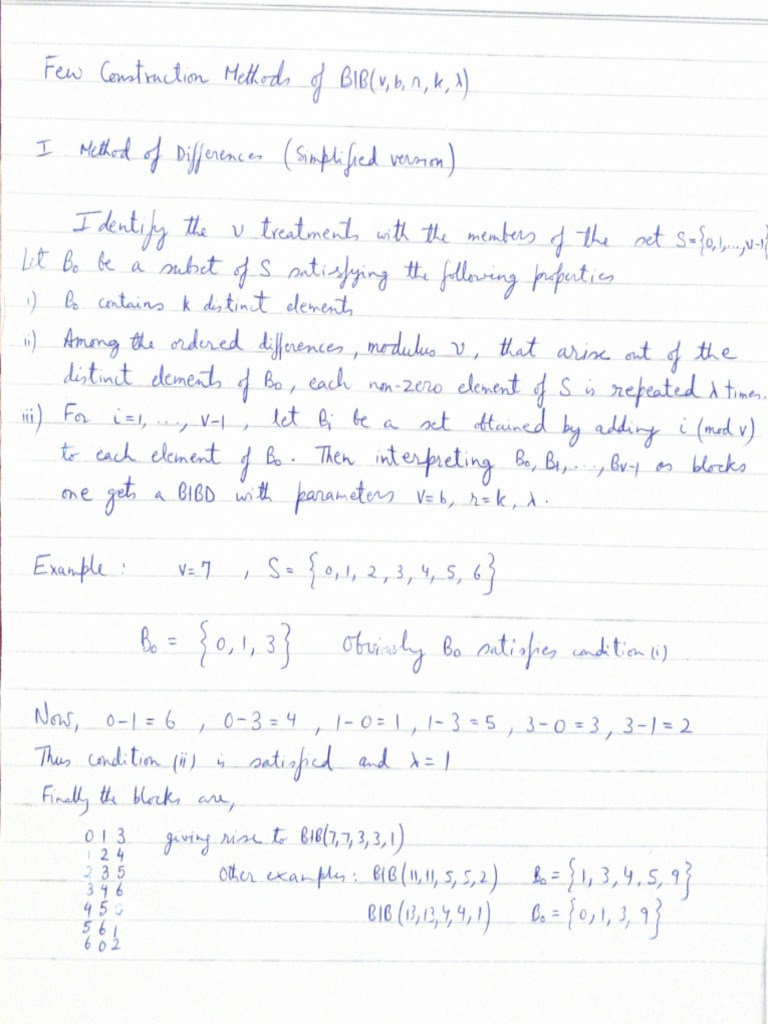 Few Construction Methods of BIB(v, b, r, k, λ)
I Method of Differences (Simplified version)
Identify the v treatments with the members of the set S={0,1,...,v-1}
Let B0 be a subset of S satisfying the following properties
i) B0 contains k distinct elements
ii) Among the ordered differences, modulus v, that arise out of the
distinct elements of B0, each non-zero element of S is repeated λ times.
iii) For i=1, ..., v-1, let Bi be a set obtained by adding i (mod v)
to each element of B0. Then interpreting B0, B1, ..., Bv-1 as blocks
one gets a BIBD with parameters v=b, r=k, λ.
Example: v=7, S = {0, 1, 2, 3, 4, 5, 6}
B0 = {0, 1, 3} Obviously B0 satisfies condition (i)
Now, 0-1=6, 0-3=4, 1-0=1, 1-3=5, 3-0=3, 3-1=2
Thus condition (ii) is satisfied and λ=1
Finally the blocks are,
0 1 3 giving rise to BIB(7,7,3,3,1)
1 2 4
2 3 5 Other examples: BIB(11,11,5,5,2) B0={1, 3, 4, 5, 9}
3 4 6
4 5 0 BIB(13,13,4,4,1) B0={0, 1, 3, 9}
5 6 1
6 0 2